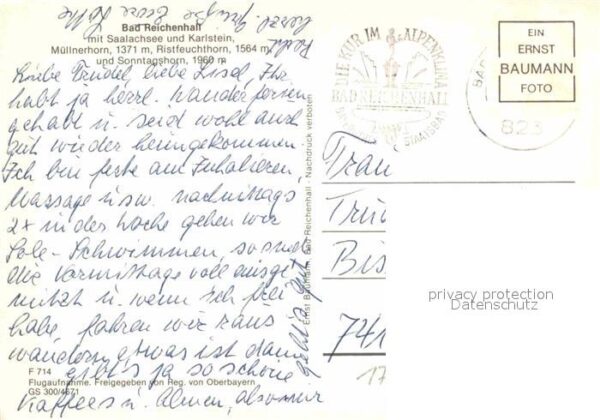 Bad Reichenhall
mit Saalachsee und Karlstein,
Müllnerhorn, 1371 m, Ristfeuchthorn, 1564 m
und Sonntagshorn, 1960 m
Liebe Trudel, liebe Lissel, Ihr
habt ja herrl. Wanderferien
gehabt u. seid wohl auch
gut wieder heimgekommen.
Ich bin feste am Inhalieren,
Massage usw. nachmittags
2x in der Woche gehen wir
Sole-Schwimmen, so sind
die Vormittage voll ausge
nützt u. wenn ich frei
habe fahren wir raus
wandern, etwas ist dann
gibt's ja so schöne
Kaffees u. Almen, also mir
geht's gut
F 714
Flugaufnahme. Freigegeben von Reg. von Oberbayern
GS 300/4671
Ernst Baumann, Bad Reichenhall - Nachdruck verboten
DIE KUR IM ALPENKLIMA
BAD REICHENHALL
STAATSBAD
823
EIN
ERNST
BAUMANN
FOTO
Frau
Tru
Bis
741
17
privacy protection
Datenschutz